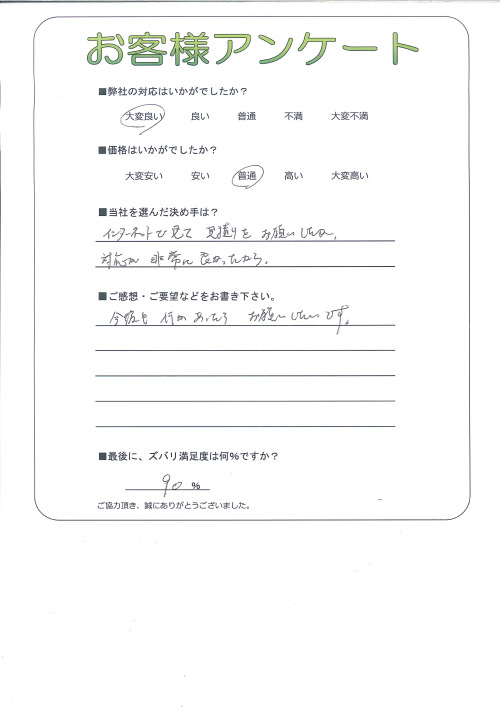 お客様アンケート
■弊社の対応はいかがでしたか？
大変良い 良い 普通 不満 大変不満
■価格はいかがでしたか？
大変安い 安い 普通 高い 大変高い
■当社を選んだ決め手は？
インターネットで見て 見積りを お願いしたら、
対応が 非常に良かったから。
■ご感想・ご要望などをお書き下さい。
今後も 何かあったら お願いしたいです。
■最後に、ズバリ満足度は何%ですか？
90 %
ご協力頂き、誠にありがとうございました。